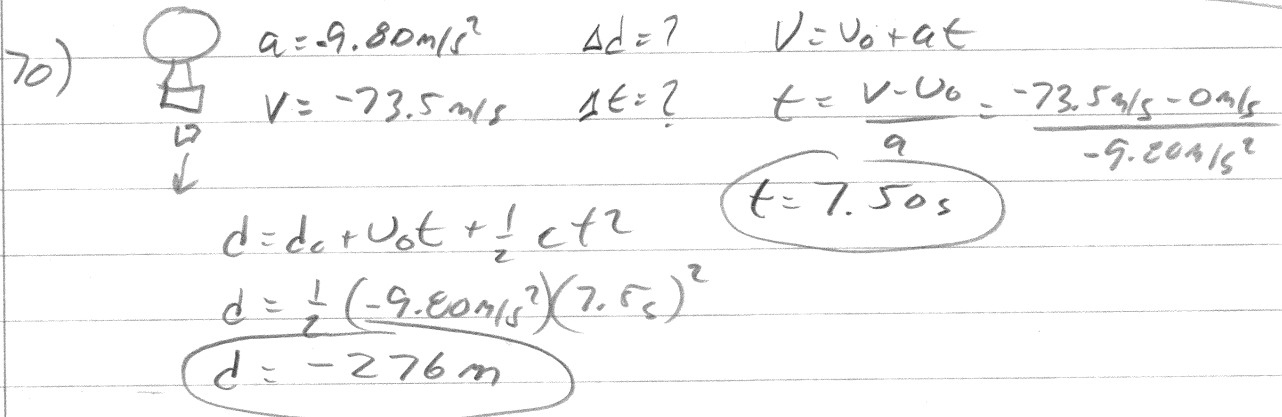 70) a = -9.80 m/s² Δd = ? V = V₀ + at
V = -73.5 m/s Δt = ? t = (V - V₀)/a = (-73.5 m/s - 0 m/s)/(-9.80 m/s²)
t = 7.50 s
d = d₀ + V₀t + 1/2 at²
d = 1/2 (-9.80 m/s²)(7.5 s)²
d = -276 m